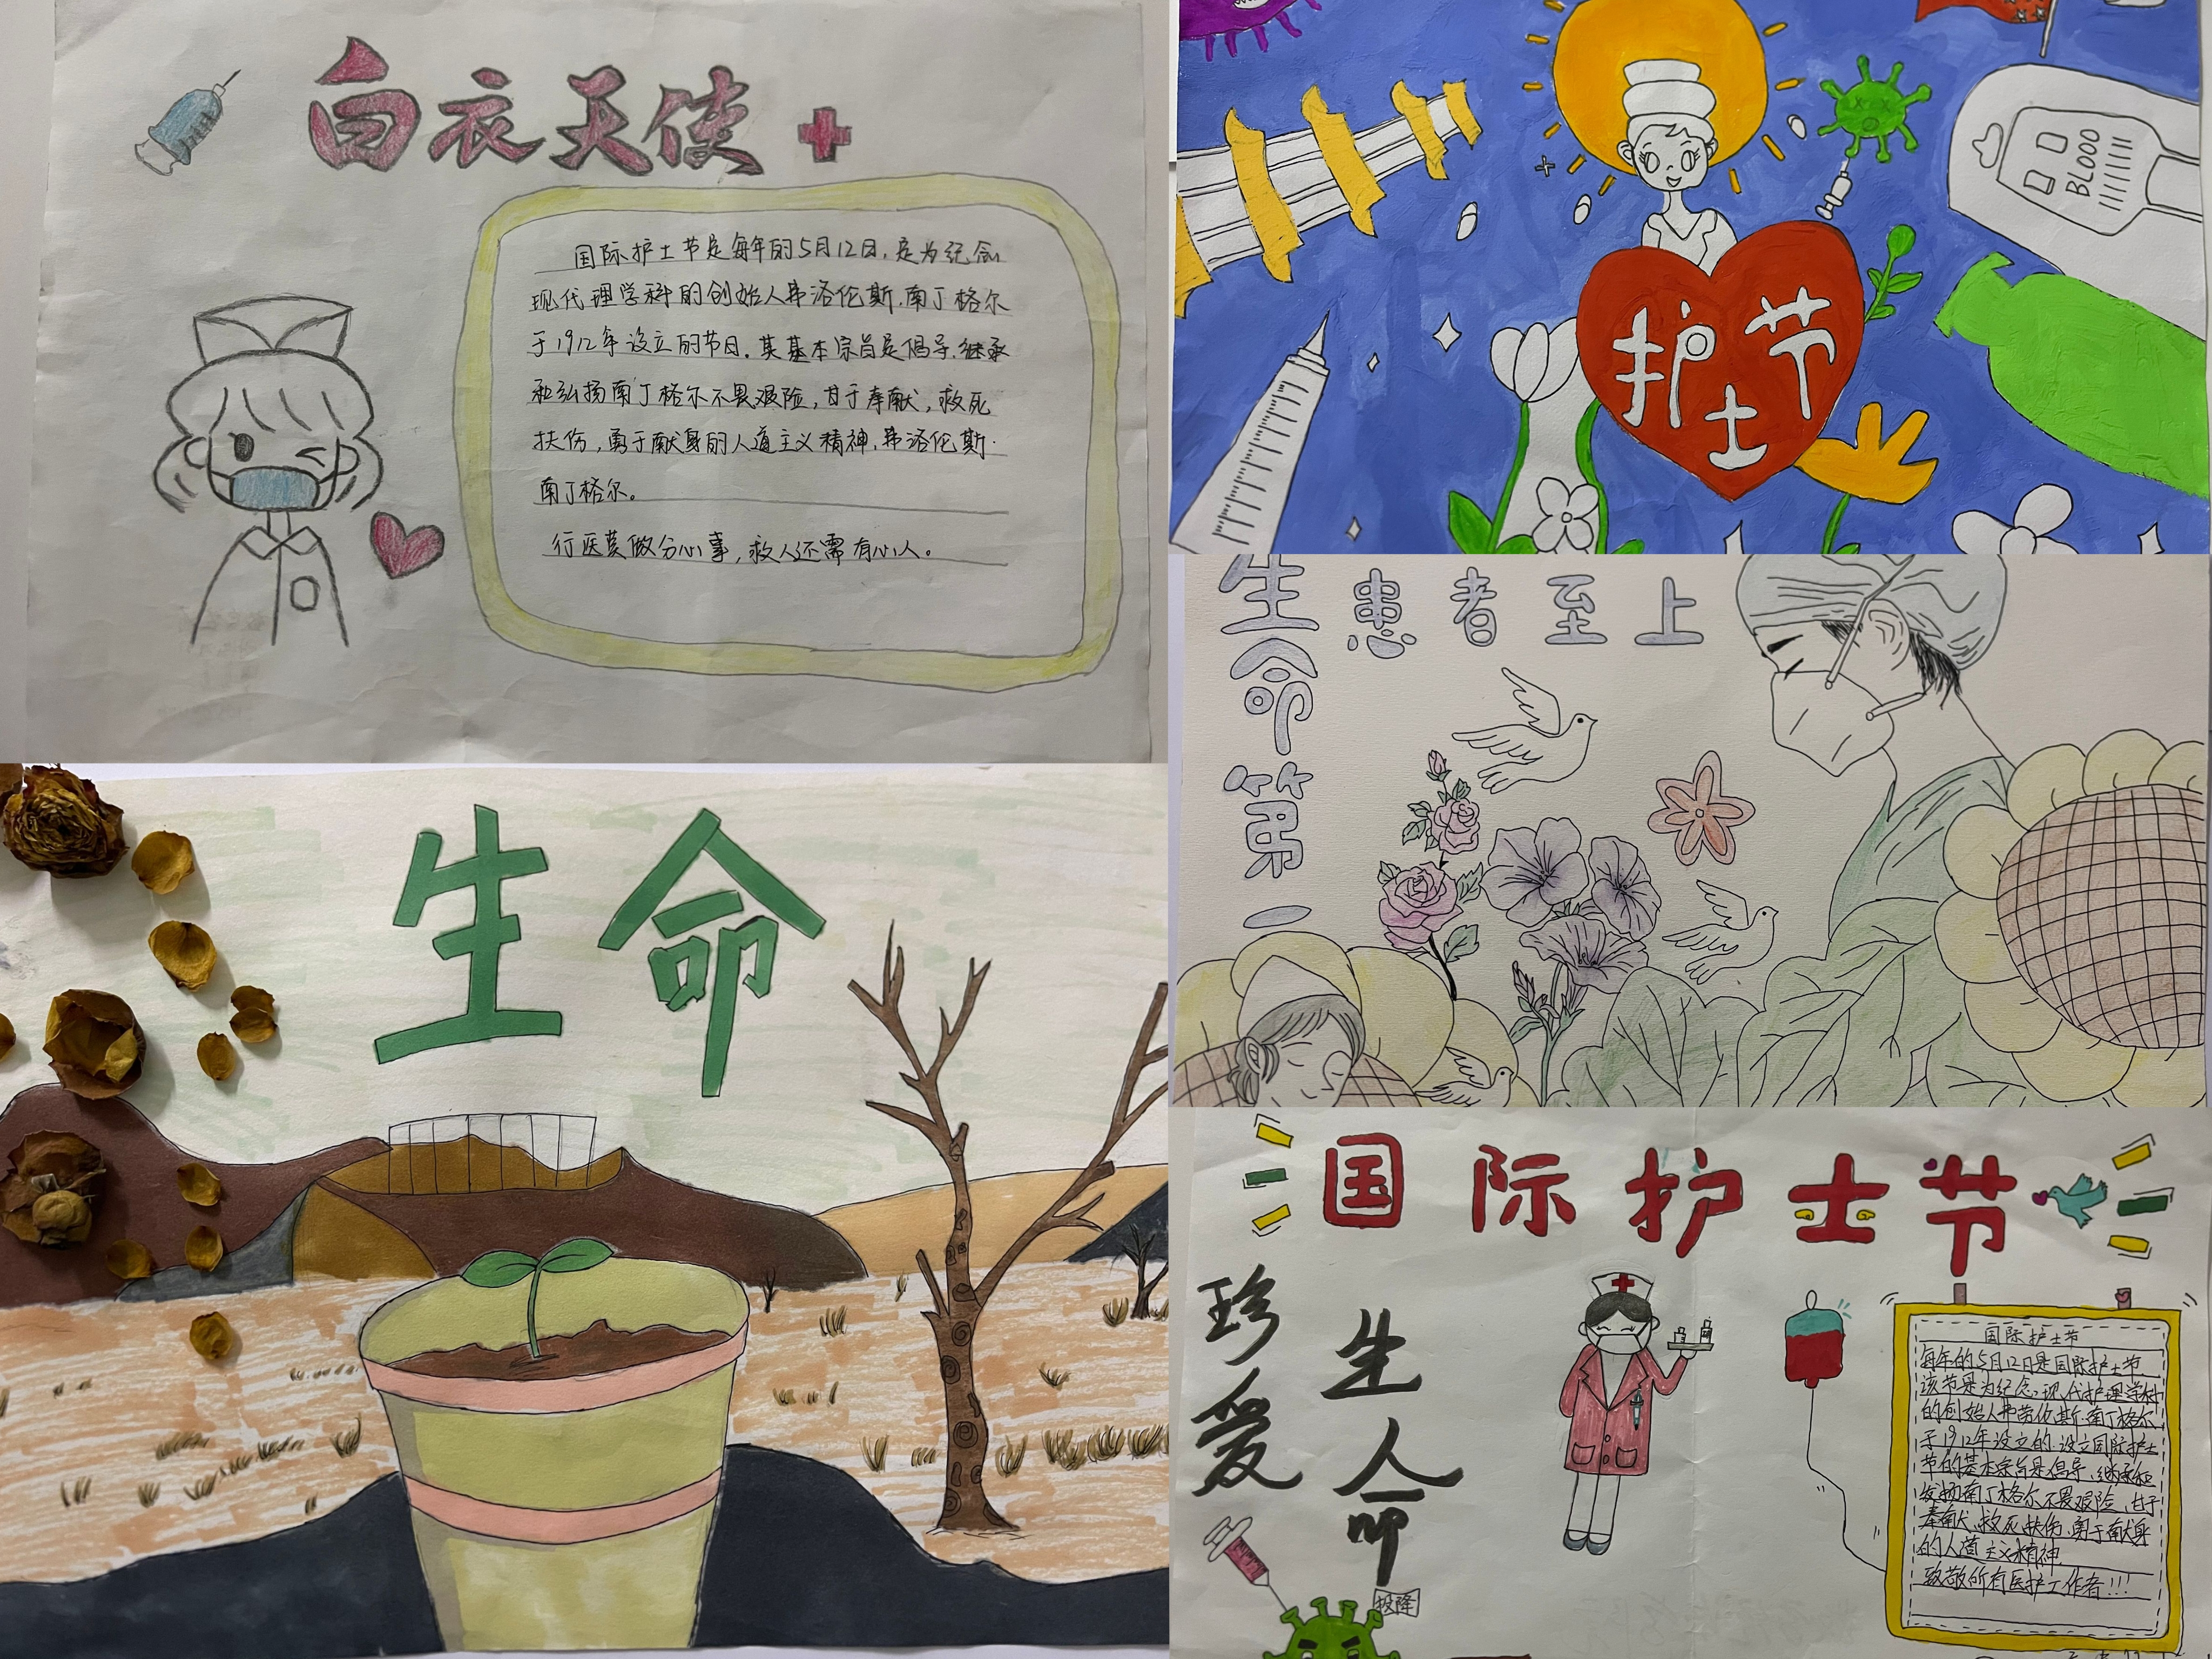 白衣天使
国际护士节是每年的5月12日,是为纪念
现代理学科的创始人弗洛伦斯.南丁格尔
于1912年设立的节日.其基本宗旨是倡导.继承
和弘扬南丁格尔不畏艰险,甘于奉献,救死
扶伤,勇于献身的人道主义精神.弗洛伦斯.
南丁格尔。
行医莫做分心事,救人还需有心人。
BLOOD
护士节
患者至上
生命第一
生命
国际护士节
珍爱
生命
国际护士节
每年的5月12日是国际护士节
该节是为纪念现代护理学科
的创始人弗劳伦斯.南丁格尔
于1912年设立的.设立国际护士
节的基本宗旨是倡导、继承和
发扬南丁格尔不畏艰险、甘于
奉献、救死扶伤、勇于献身
的人道主义精神
致敬所有医护工作者!!!
投降